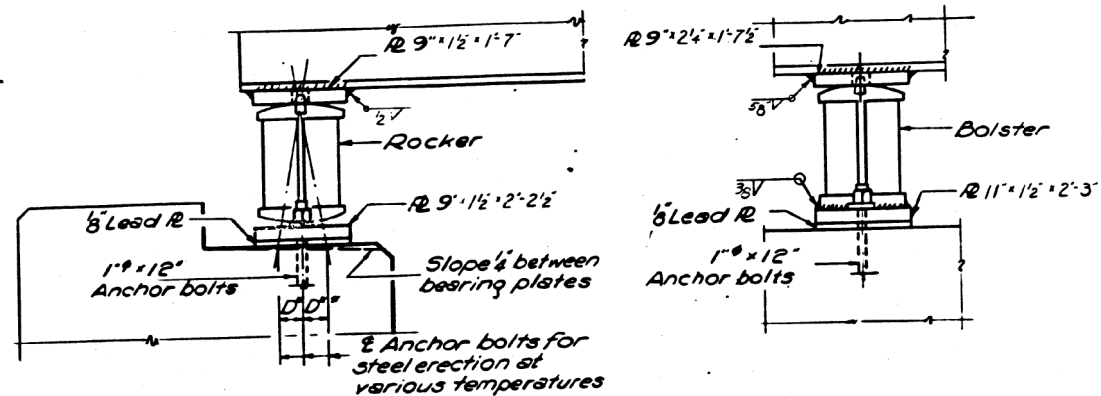 ℄ 9" x 1½ x 1'-7"
½ V
Rocker
℄ 9" x 1½ x 2'-2½"
⅛" Lead ℄
1"ϕ x 12"
Anchor bolts
Slope ¼" between
bearing plates
D" D"
℄ Anchor bolts for
steel erection at
various temperatures
℄ 9" x 2¼" x 1'-7½"
5/8 V
Bolster
3/8 V
℄ 11" x 1½" x 2'-3"
⅛" Lead ℄
1"ϕ x 12"
Anchor bolts